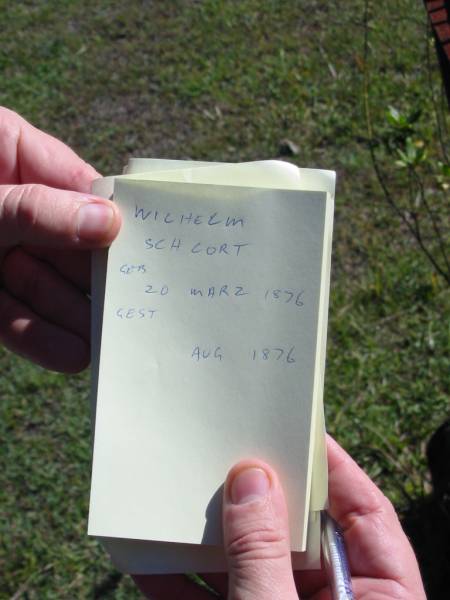 WILHELM
SCHLORT
GEB
20 MARZ 1876
GEST
AUG 1876